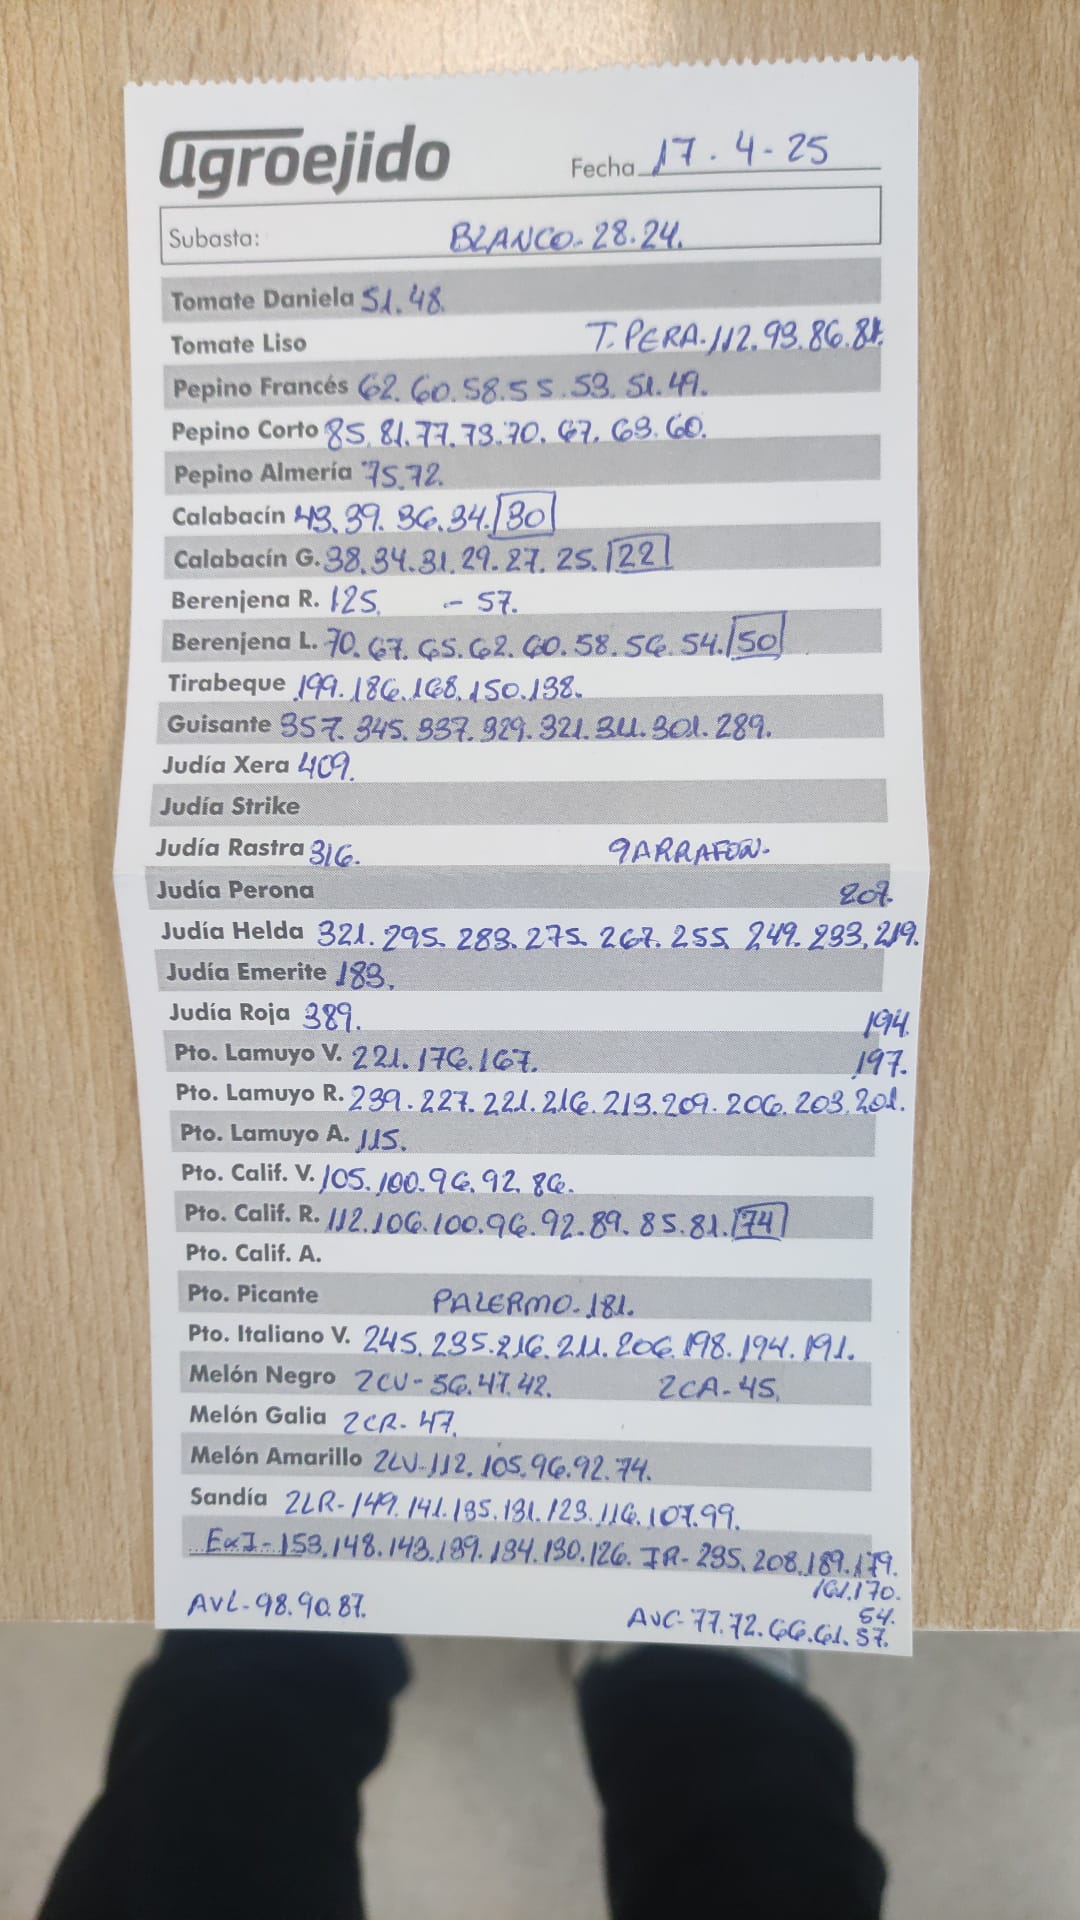 agroejido
Fecha 17.4-25
Subasta: BLANCO-28.24.
Tomate Daniela 51.48.
Tomate Liso T. PERA-112.93.86.81.
Pepino Francés 62.60.58.55.53.51.49.
Pepino Corto 85.81.77.73.70.67.63.60.
Pepino Almería 75.72.
Calabacín 43.39.36.34.30
Calabacín G. 38.34.31.29.27.25.22
Berenjena R. 125. - 57.
Berenjena L. 70.67.65.62.60.58.56.54.50
Tirabeque 199.186.168.150.138.
Guisante 357.345.337.329.321.311.301.289.
Judía Xera 409.
Judía Strike
Judía Rastra 316. GARRAFON-
Judía Perona 207.
Judía Helda 321.295.283.275.267.255.249.233.219.
Judía Emerite 183.
Judía Roja 389. 194.
Pto. Lamuyo V. 221.176.167. 197.
Pto. Lamuyo R. 239.227.221.216.213.209.206.203.201.
Pto. Lamuyo A. 115.
Pto. Calif. V. 105.100.96.92.86.
Pto. Calif. R. 112.106.100.96.92.89.85.81.74
Pto. Calif. A.
Pto. Picante PALERMO-181.
Pto. Italiano V. 245.235.216.211.206.198.194.191.
Melón Negro 2CV-56.47.42. 2CA-45.
Melón Galia 2CR-47.
Melón Amarillo 2LV-112.105.96.92.74.
Sandía 2LR-149.141.135.131.123.116.107.99.
153.148.143.139.134.130.126. IR-235.208.189.179.
161.170.
AVL-98.90.87.
54.
AVC-77.72.66.61.57.